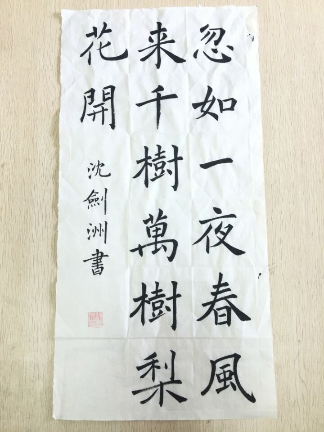 忽如一夜春風
来千樹萬樹梨
花開
沈劍洲書